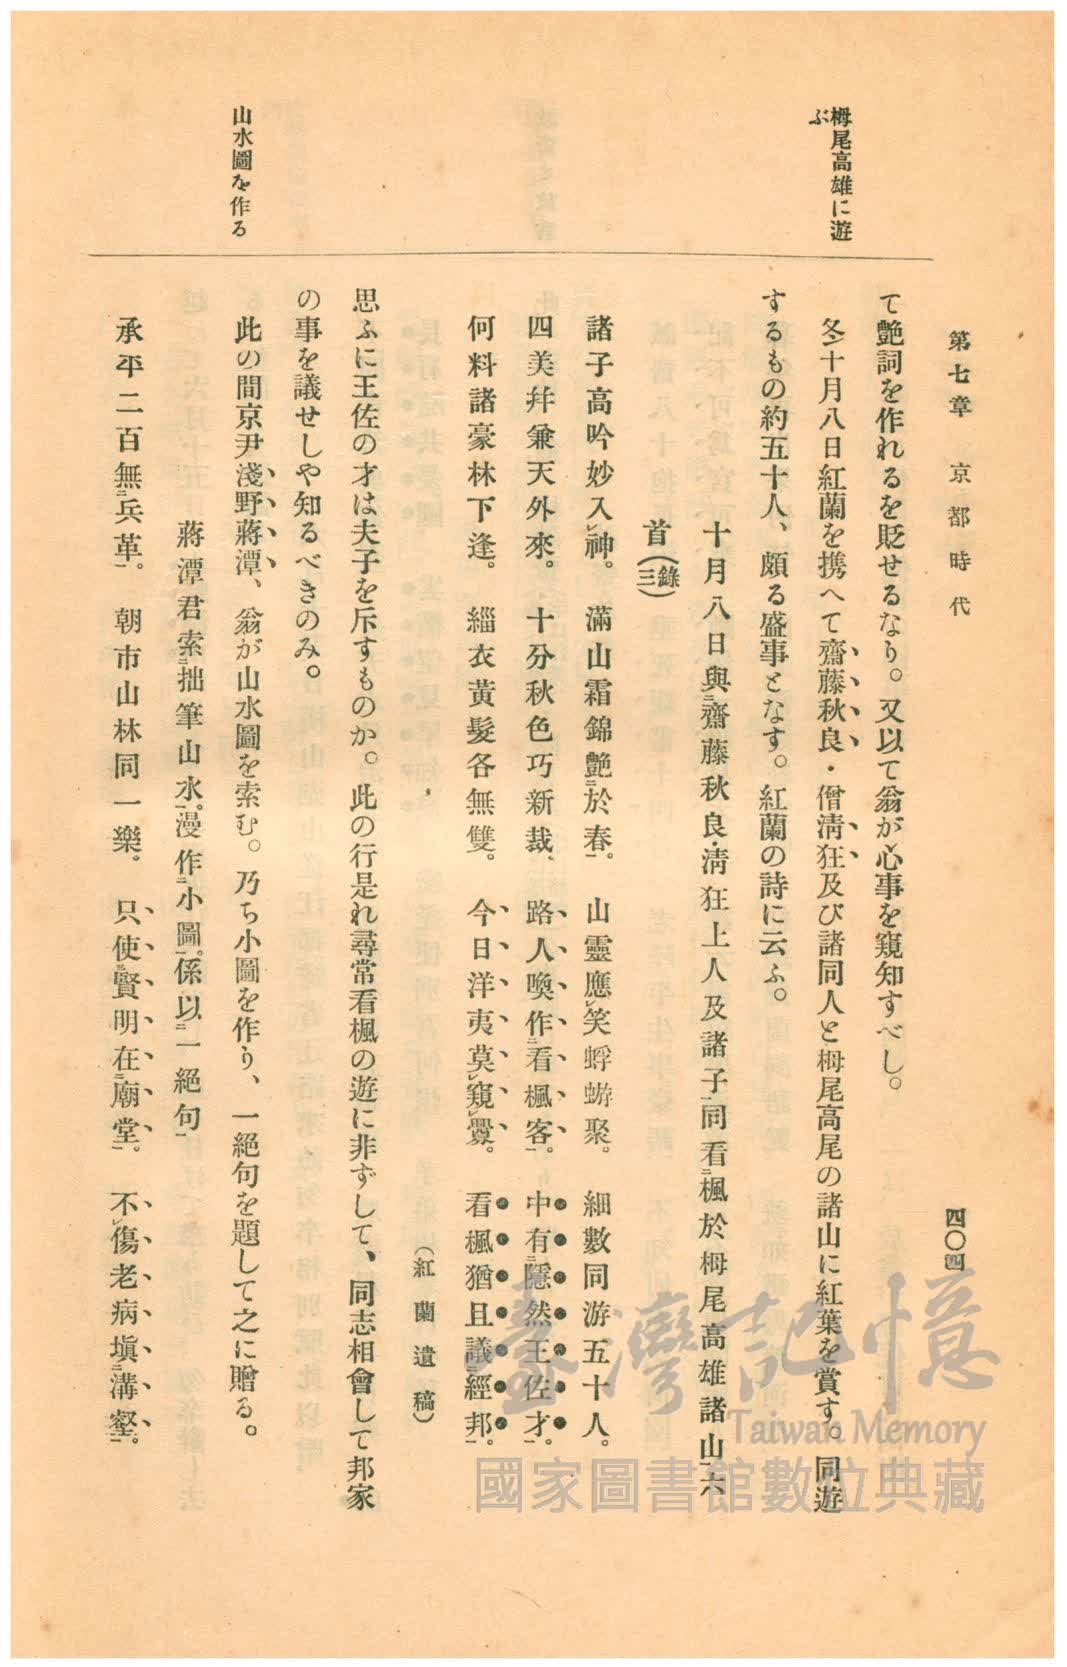 第七章 京都時代
四〇四
栂尾高雄に遊
ぶ
山水圖を作る
て艶詞を作れるを貶せるなり。又以て翁が心事を窺知すべし。
冬十月八日紅蘭を携へて齋藤秋良・僧淸狂及び諸同人と栂尾高尾の諸山に紅葉を賞す。同遊
するもの約五十人、頗る盛事となす。紅蘭の詩に云ふ。
十月八日與二齋藤秋良・淸狂上人及諸子一同看二楓於栂尾高雄諸山一六
首(錄三)
諸子高吟妙入レ神。滿山霜錦艶二於春一。山靈應レ笑蜉蝣聚。細數同游五十人。
四美幷兼天外來。十分秋色巧新裁、路人喚作二看楓客一。中有二隱然王佐才一。
何料諸豪林下逢。緇衣黃髮各無雙。今日洋夷莫レ窺レ釁。看楓猶且議二經邦一。
(紅蘭遺稿)
思ふに王佐の才は夫子を斥すものか。此の行是れ尋常看楓の遊に非ずして、同志相會して邦家
の事を議せしや知るべきのみ。
此の間京尹淺野蔣潭、翁が山水圖を索む。乃ち小圖を作り、一絕句を題して之に贈る。
蔣潭君索二拙筆山水一。漫作二小圖一。係以二一絕句一
承平二百無二兵革一。朝市山林同一樂。只使三賢明在二廟堂一。不レ傷老病塡二溝壑一。
臺灣記憶
Taiwan Memory
國家圖書館數位典藏